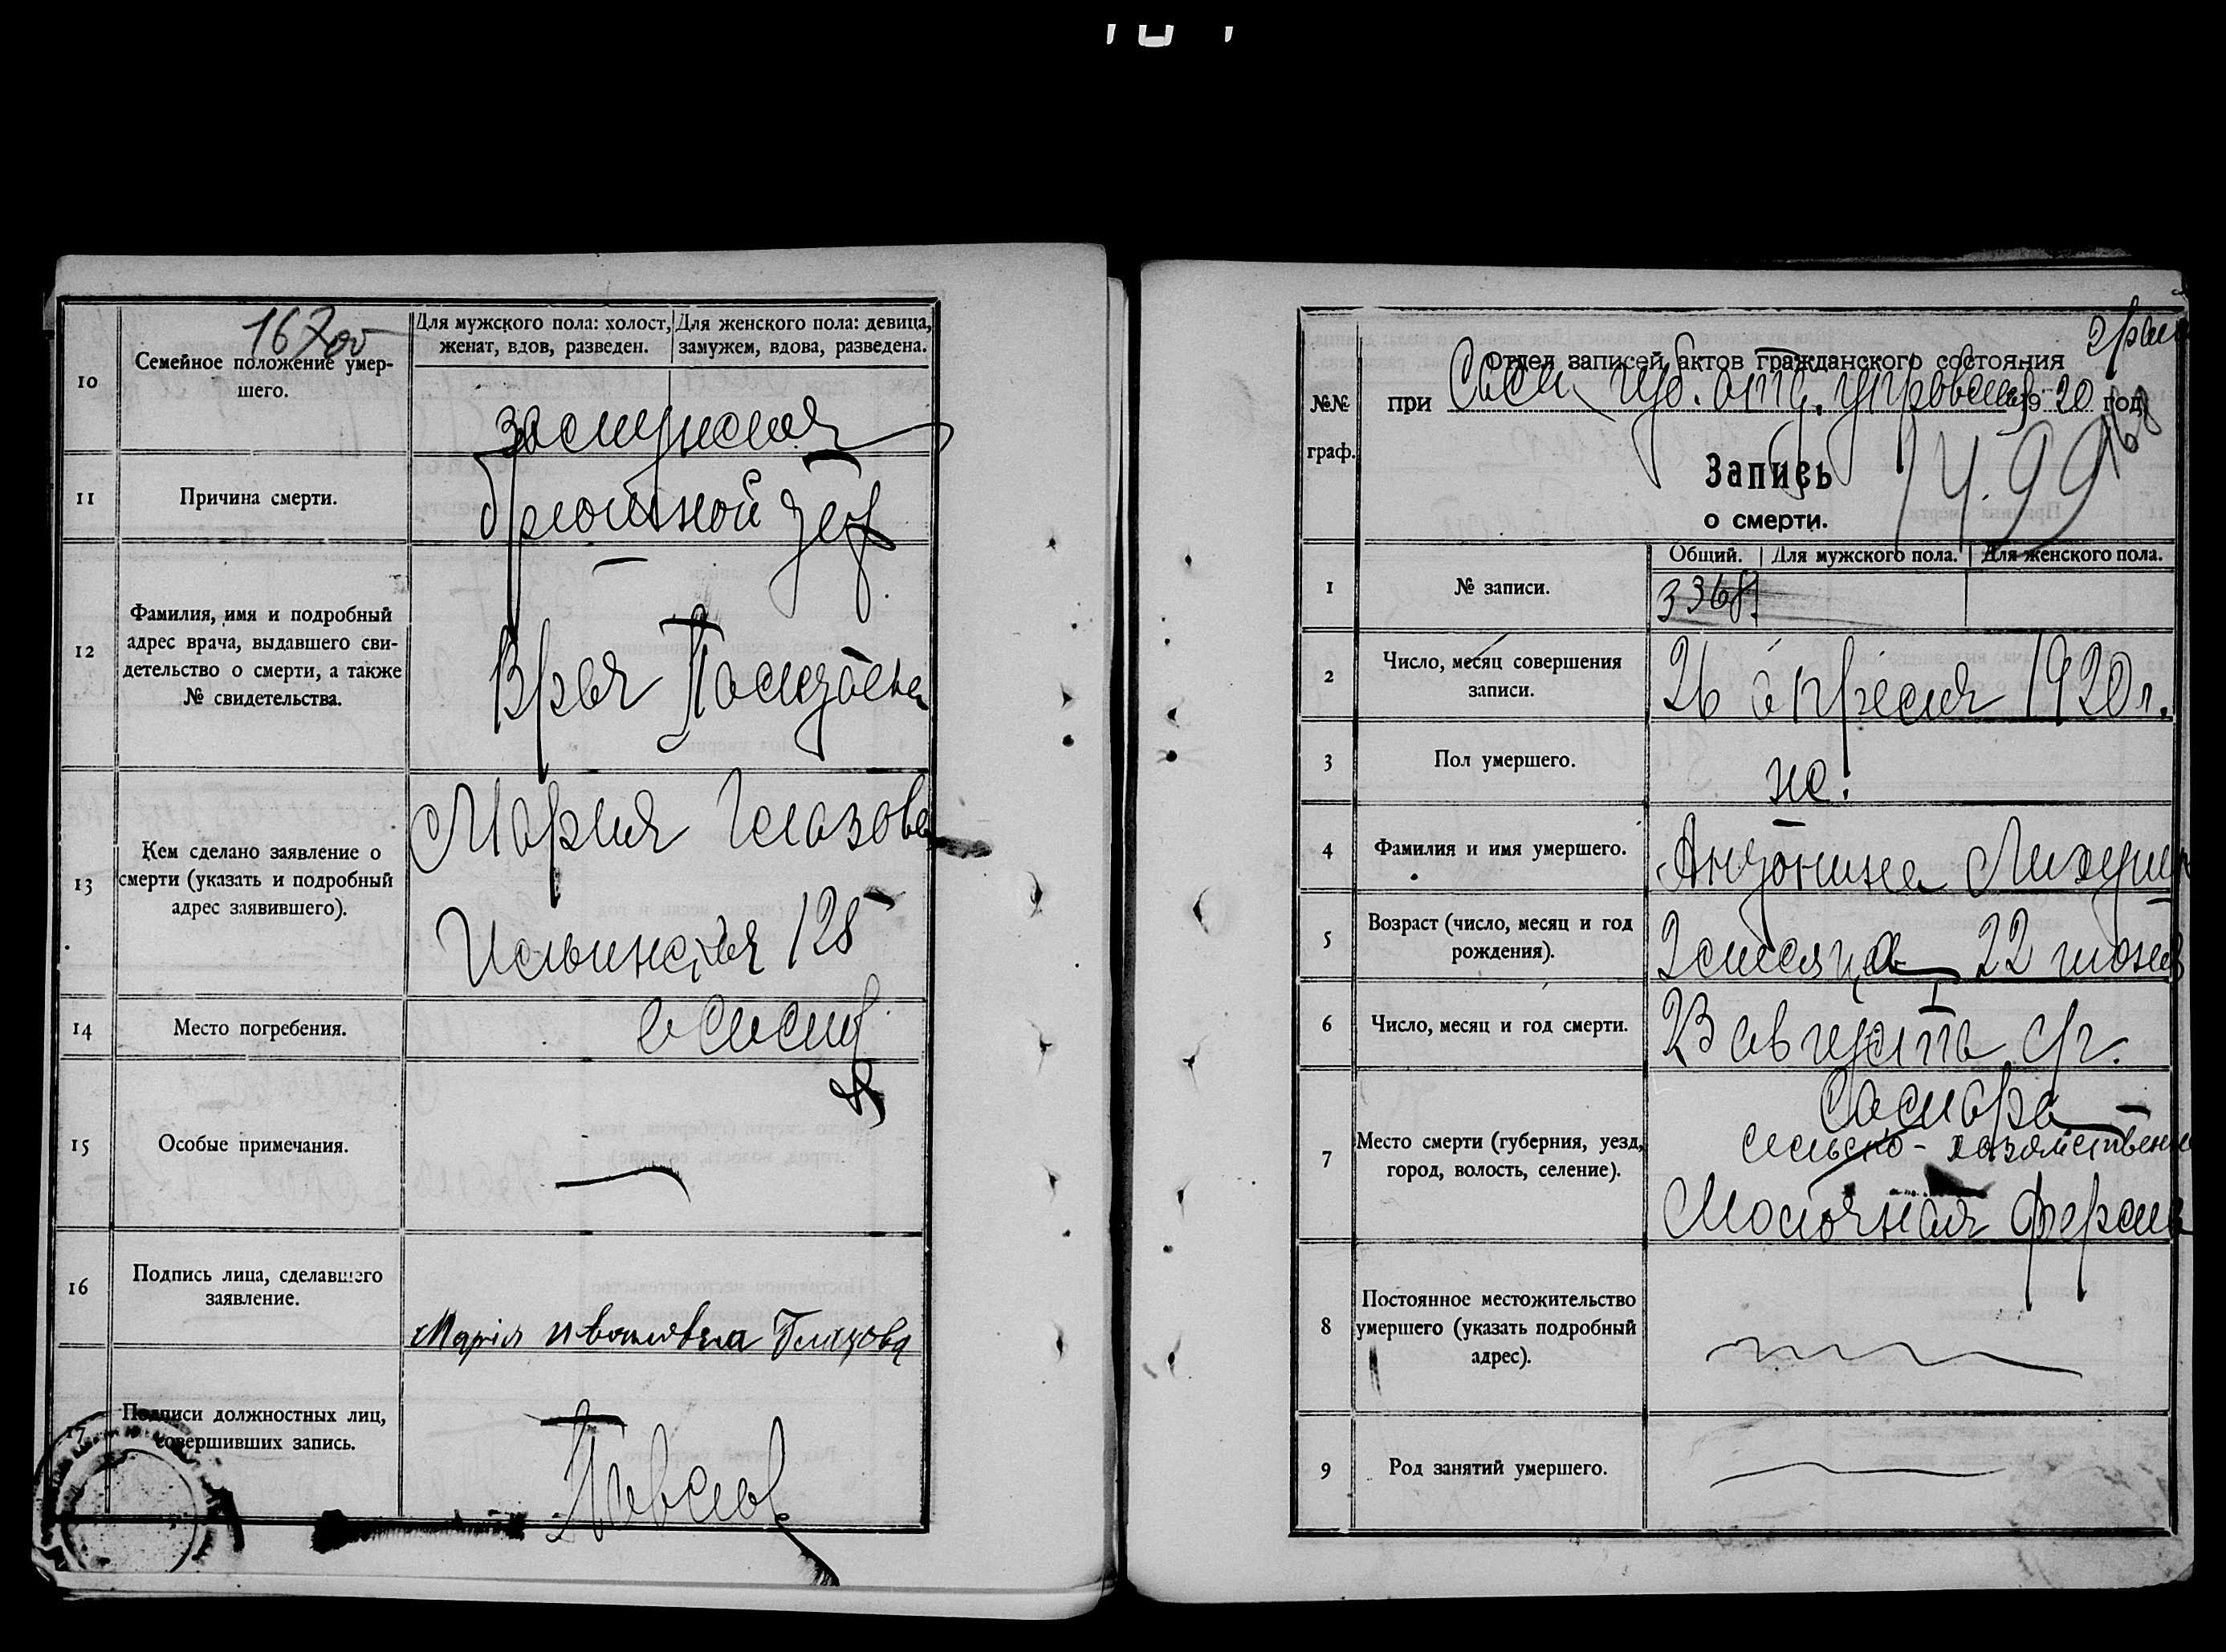 16700
10
Семейное положение умер-
шего.
Для мужского пола: холост,
женат, вдов, разведен.
Для женского пола: девица,
замужем, вдова, разведена.
11
Причина смерти.
брюшной
12
Фамилия, имя и подробный
адрес врача, выдавшего сви-
детельство о смерти, а также
№ свидетельства.
Врач
13
Кем сделано заявление о
смерти (указать и подробный
адрес заявившего).
Мария Глазова
Ильинская 128
14
Место погребения.
15
Особые примечания.
16
Подпись лица, сделавшего
заявление.
Марія Ивановна Глазова
17
Подписи должностных лиц,
совершивших запись.
Павлов
№№
граф.
Отдел записей актов гражданского состояния
при Сам. губ. отд. управления 1920 год
Запись
о смерти.
Общий. Для мужского пола. Для женского пола.
1
№ записи.
3368
2
Число, месяц совершения
записи.
26 апреля 1920 г.
3
Пол умершего.
ж.
4
Фамилия и имя умершего.
Антонина
5
Возраст (число, месяц и год
рождения).
2 месяца 22
6
Число, месяц и год смерти.
23 августа с/г.
7
Место смерти (губерния, уезд,
город, волость, селение).
Самара
Сельско-хозяйствен
Молочная ферма
8
Постоянное местожительство
умершего (указать подробный
адрес).
9
Род занятий умершего.